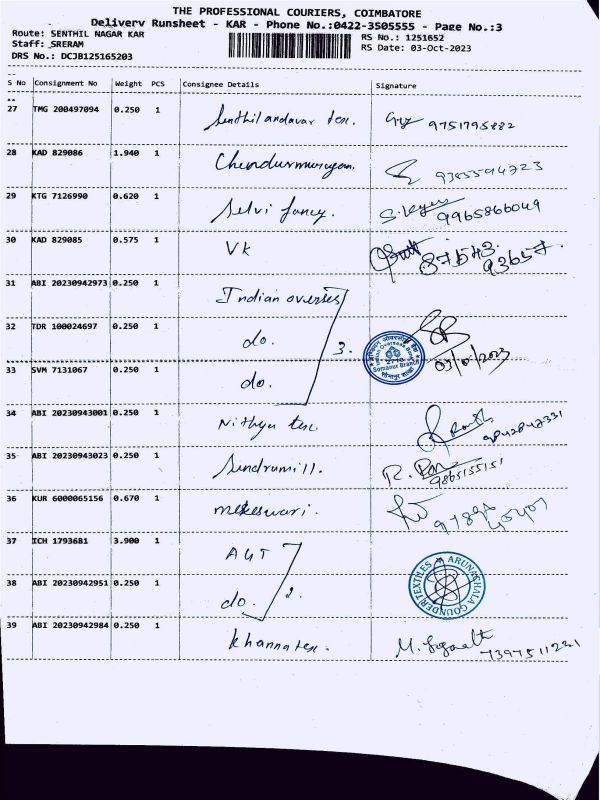 THE PROFESSIONAL COURIERS, COIMBATORE
Delivery Runsheet - KAR - Phone No.:0422-3505555 - Page No.:3
Route: SENTHIL NAGAR KAR
RS No.: 1251652
Staff: SRERAM
RS Date: 03-Oct-2023
DRS No.: DCJB125165203
S No Consignment No Weight PCS Consignee Details Signature
27 TMG 200497094 0.250 1 Senthilandavar tex. 9751795882
28 KAD 829086 1.940 1 Chendurmurugan.
29 KTG 7126990 0.620 1 Selvi fancy. 9965866049
30 KAD 829085 0.575 1 Vk 87543. 93657.
31 ABI 20230942973 0.250 1 Indian overses
32 TDR 100024697 0.250 1 do. 3.
Indian Overseas Bank
Somanur Branch
33 SVM 7131067 0.250 1 do. 03/10/2023
34 ABI 20230943001 0.250 1 Nithya tex 9842847331
35 ABI 20230943023 0.250 1 Sundrumill. 9865155151
36 KUR 6000065156 0.670 1 mekeswari.
37 ICH 1793681 3.900 1 AGT
ARUNACHALA GOUNDER TEXTILES
38 ABI 20230942951 0.250 1 do. 2.
39 ABI 20230942984 0.250 1 Khanna tex. 7397511221